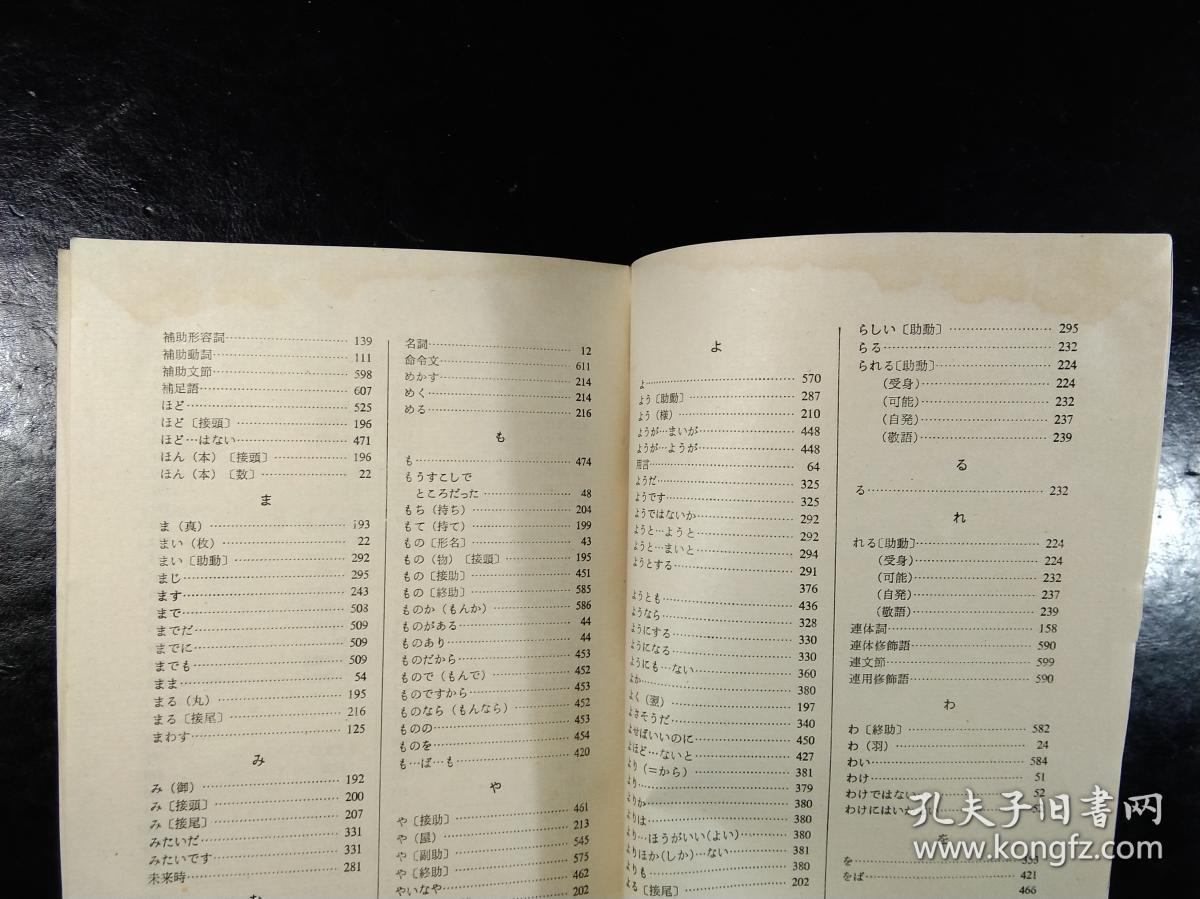 補助形容詞……139
補助動詞……111
補助文節……598
補足語……607
ほど……525
ほど〔接頭〕……196
ほど…はない……471
ほん（本）〔接頭〕……196
ほん（本）〔数〕……22
ま
ま（真）……193
まい（枚）……22
まい〔助動〕……292
まじ……295
ます……243
まで……508
までだ……509
までに……509
までも……509
まま……54
まる（丸）……195
まる〔接尾〕……216
まわす……125
み
み（御）……192
み〔接頭〕……200
み〔接尾〕……207
みたいだ……331
みたいです……331
未来時……281
名詞……12
命令文……611
めかす……214
めく……214
める……216
も
も……474
もうすこしで
ところだった……48
もち（持ち）……204
もて（持て）……199
もの〔形名〕……43
もの（物）〔接頭〕……195
もの〔接助〕……451
もの〔終助〕……585
ものか（もんか）……586
ものがある……44
ものあり……44
ものだから……453
もので（もんで）……452
ものですから……453
ものなら（もんなら）……452
ものの……453
ものを……454
も…ば…も……420
や
や〔接助〕……461
や（屋）……213
や〔副助〕……545
や〔終助〕……575
やいなや……462
202
よ
よ……570
よう〔助動〕……287
よう（様）……210
ようが…まいが……448
ようが…ようが……448
用言……64
ようだ……325
ようです……325
ようではないか……292
ようと…ようと……292
ようと…まいと……294
ようとする……291
376
ようとも……436
ようなら……328
ようにする……330
ようになる……330
ようにも…ない……360
よか……380
よく（翌）……197
よさそうだ……340
よせばいいのに……450
よほど…ないと……427
より（＝から）……381
より……379
よりか……380
よりは……380
より…ほうがいい（よい）……380
よりほか（しか）…ない……381
よりも……380
よる〔接尾〕……202
らしい〔助動〕……295
らる……232
られる〔助動〕……224
（受身）……224
（可能）……232
（自発）……237
（敬語）……239
る
る……232
れ
れる〔助動〕……224
（受身）……224
（可能）……232
（自発）……237
（敬語）……239
連体詞……158
連体修飾語……590
連文節……599
連用修飾語……590
わ
わ〔終助〕……582
わ（羽）……24
わい……584
わけ……51
わけではない……52
わけにはいか
を
を……353
をば……421
466
孔夫子旧書网
www.kongfz.com